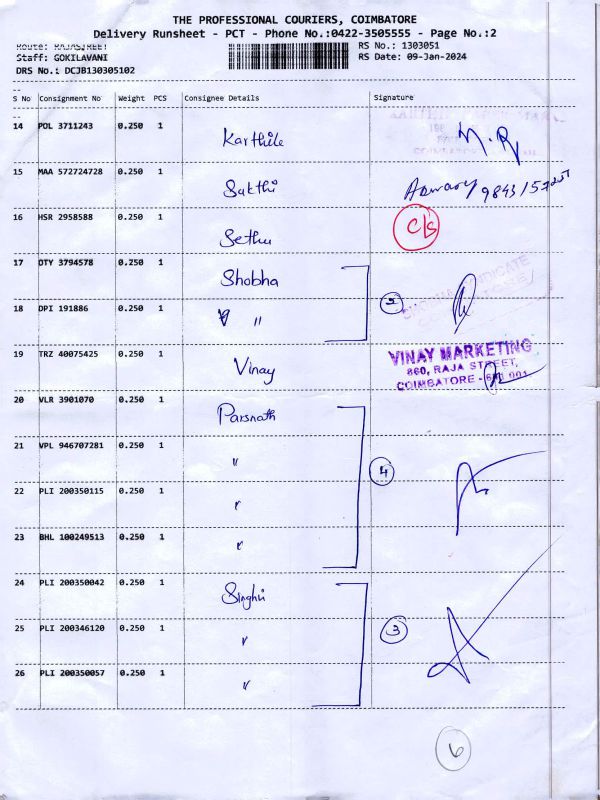 THE PROFESSIONAL COURIERS, COIMBATORE
Delivery Runsheet - PCT - Phone No.:0422-3505555 - Page No.:2
Route: RAJASJREET
RS No.: 1303051
Staff: GOKILAVANI
RS Date: 09-Jan-2024
DRS No.: DCJB130305102
--
S No Consignment No Weight PCS Consignee Details Signature
--
14 POL 3711243 0.250 1 Karthik
15 MAA 572724728 0.250 1 Sakthi
16 HSR 2958588 0.250 1 Sethu C/s
17 DTY 3794578 0.250 1 Shobha
18 DPI 191886 0.250 1 " 2
19 TRZ 40075425 0.250 1 Vinay
VINAY MARKETING
860, RAJA STREET,
COIMBATORE - 641 001
20 VLR 3901070 0.250 1 Parsnath
21 VPL 946707281 0.250 1 " 4
22 PLI 200350115 0.250 1 "
23 BHL 100249513 0.250 1 "
24 PLI 200350042 0.250 1 Singhvi
25 PLI 200346120 0.250 1 " 3
26 PLI 200350057 0.250 1 "
6